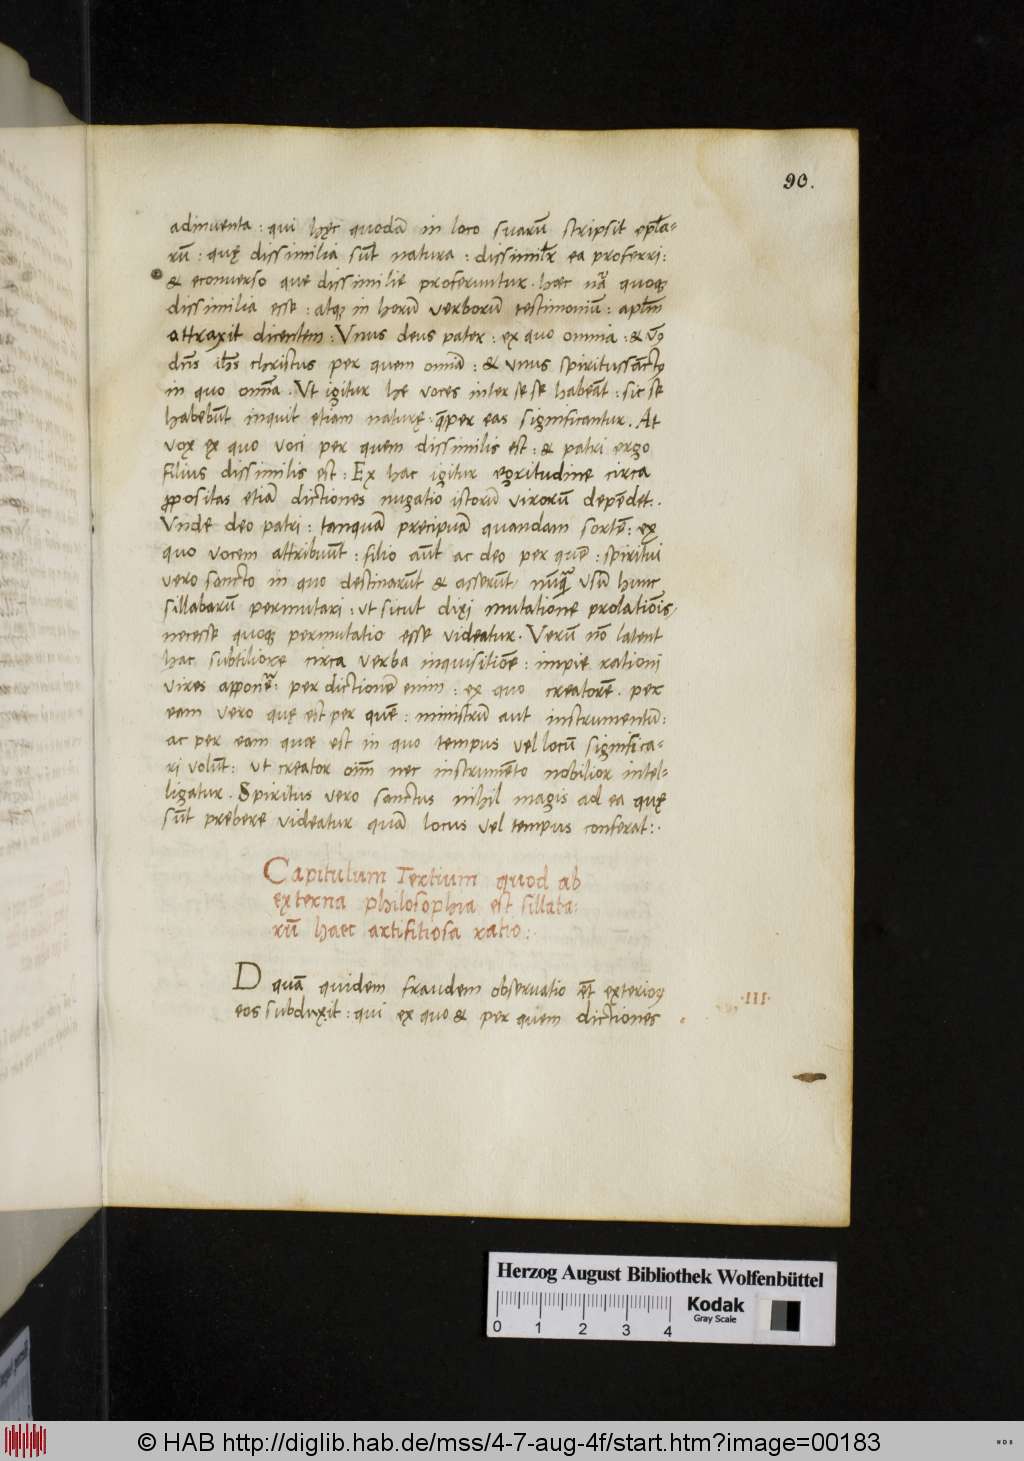 90.
adinuenta : qui hęc quodã in loco suarũ stripsit epl̃a-
rũ : quę dissimilia sũt natura : dissimilr̃ ea proferri :
& econuerso que dissimilie proferuntur . hæc nã quoq;
dissimilia esse : atq; in horũ verborũ testimoniũ : apl̃m
attraxit dicentem : Vnus deus pater : ex quo omnia : & vñ9
dñs ih̃s christus per quem omĩa : & vnus spiritussãct9
in quo omña . Ut igitur he voces inter se se habẽat : sic se
habebũt inquit etiam naturę . q̃ per eas significantur . At
vox ex quo voci per quem dissimilis est : & patri ergo
filius dissimilis est : Ex hac igitur egritudine circa
ꝓpositas etiã dictiones nugatio istorũ virorũ depẽdet . .
Vnde deo patri : tanquã precipuã quandam sortẽ : ex
quo vocem attribuũt : filio aũt ac deo per quẽ : spiritui
vero sancto in quo destinarũt & asserũt, nũq̃ vsũ hunc
sillabarũ permutari : ut sicut dixi mutatione prolatiõis,
necesse quoq; permutatio esse videatur . Verũ nõ latent
hac subtiliore circa verba inquisitiõe : impie rationi
vires apponẽ : per dictionẽ enim : ex quo creatorẽ . per
eam vero que est per quẽ : ministrũ aut instrumentũ :
ac per eam quæ est in quo tempus vel locũ significa-
ri volũt : ut creator oim̃ nec instrumẽto nobilior intel-
ligatur . Spiritus vero sanctus nihil magis ad ea quę
sũt prebere videatur quã locus vel tempus conferat : .
Capitulum Tertium quod ab
externa philosophia est sillaba:
rũ haec artifitiosa ratio : .
D quã quidem fraudem observatio ẽt exterior9
eos subduxit : qui ex quo & per quem dictiones
.III.
Herzog August Bibliothek Wolfenbüttel
0 1 2 3 4
Kodak
Gray Scale
© HAB http://diglib.hab.de/mss/4-7-aug-4f/start.htm?image=00183